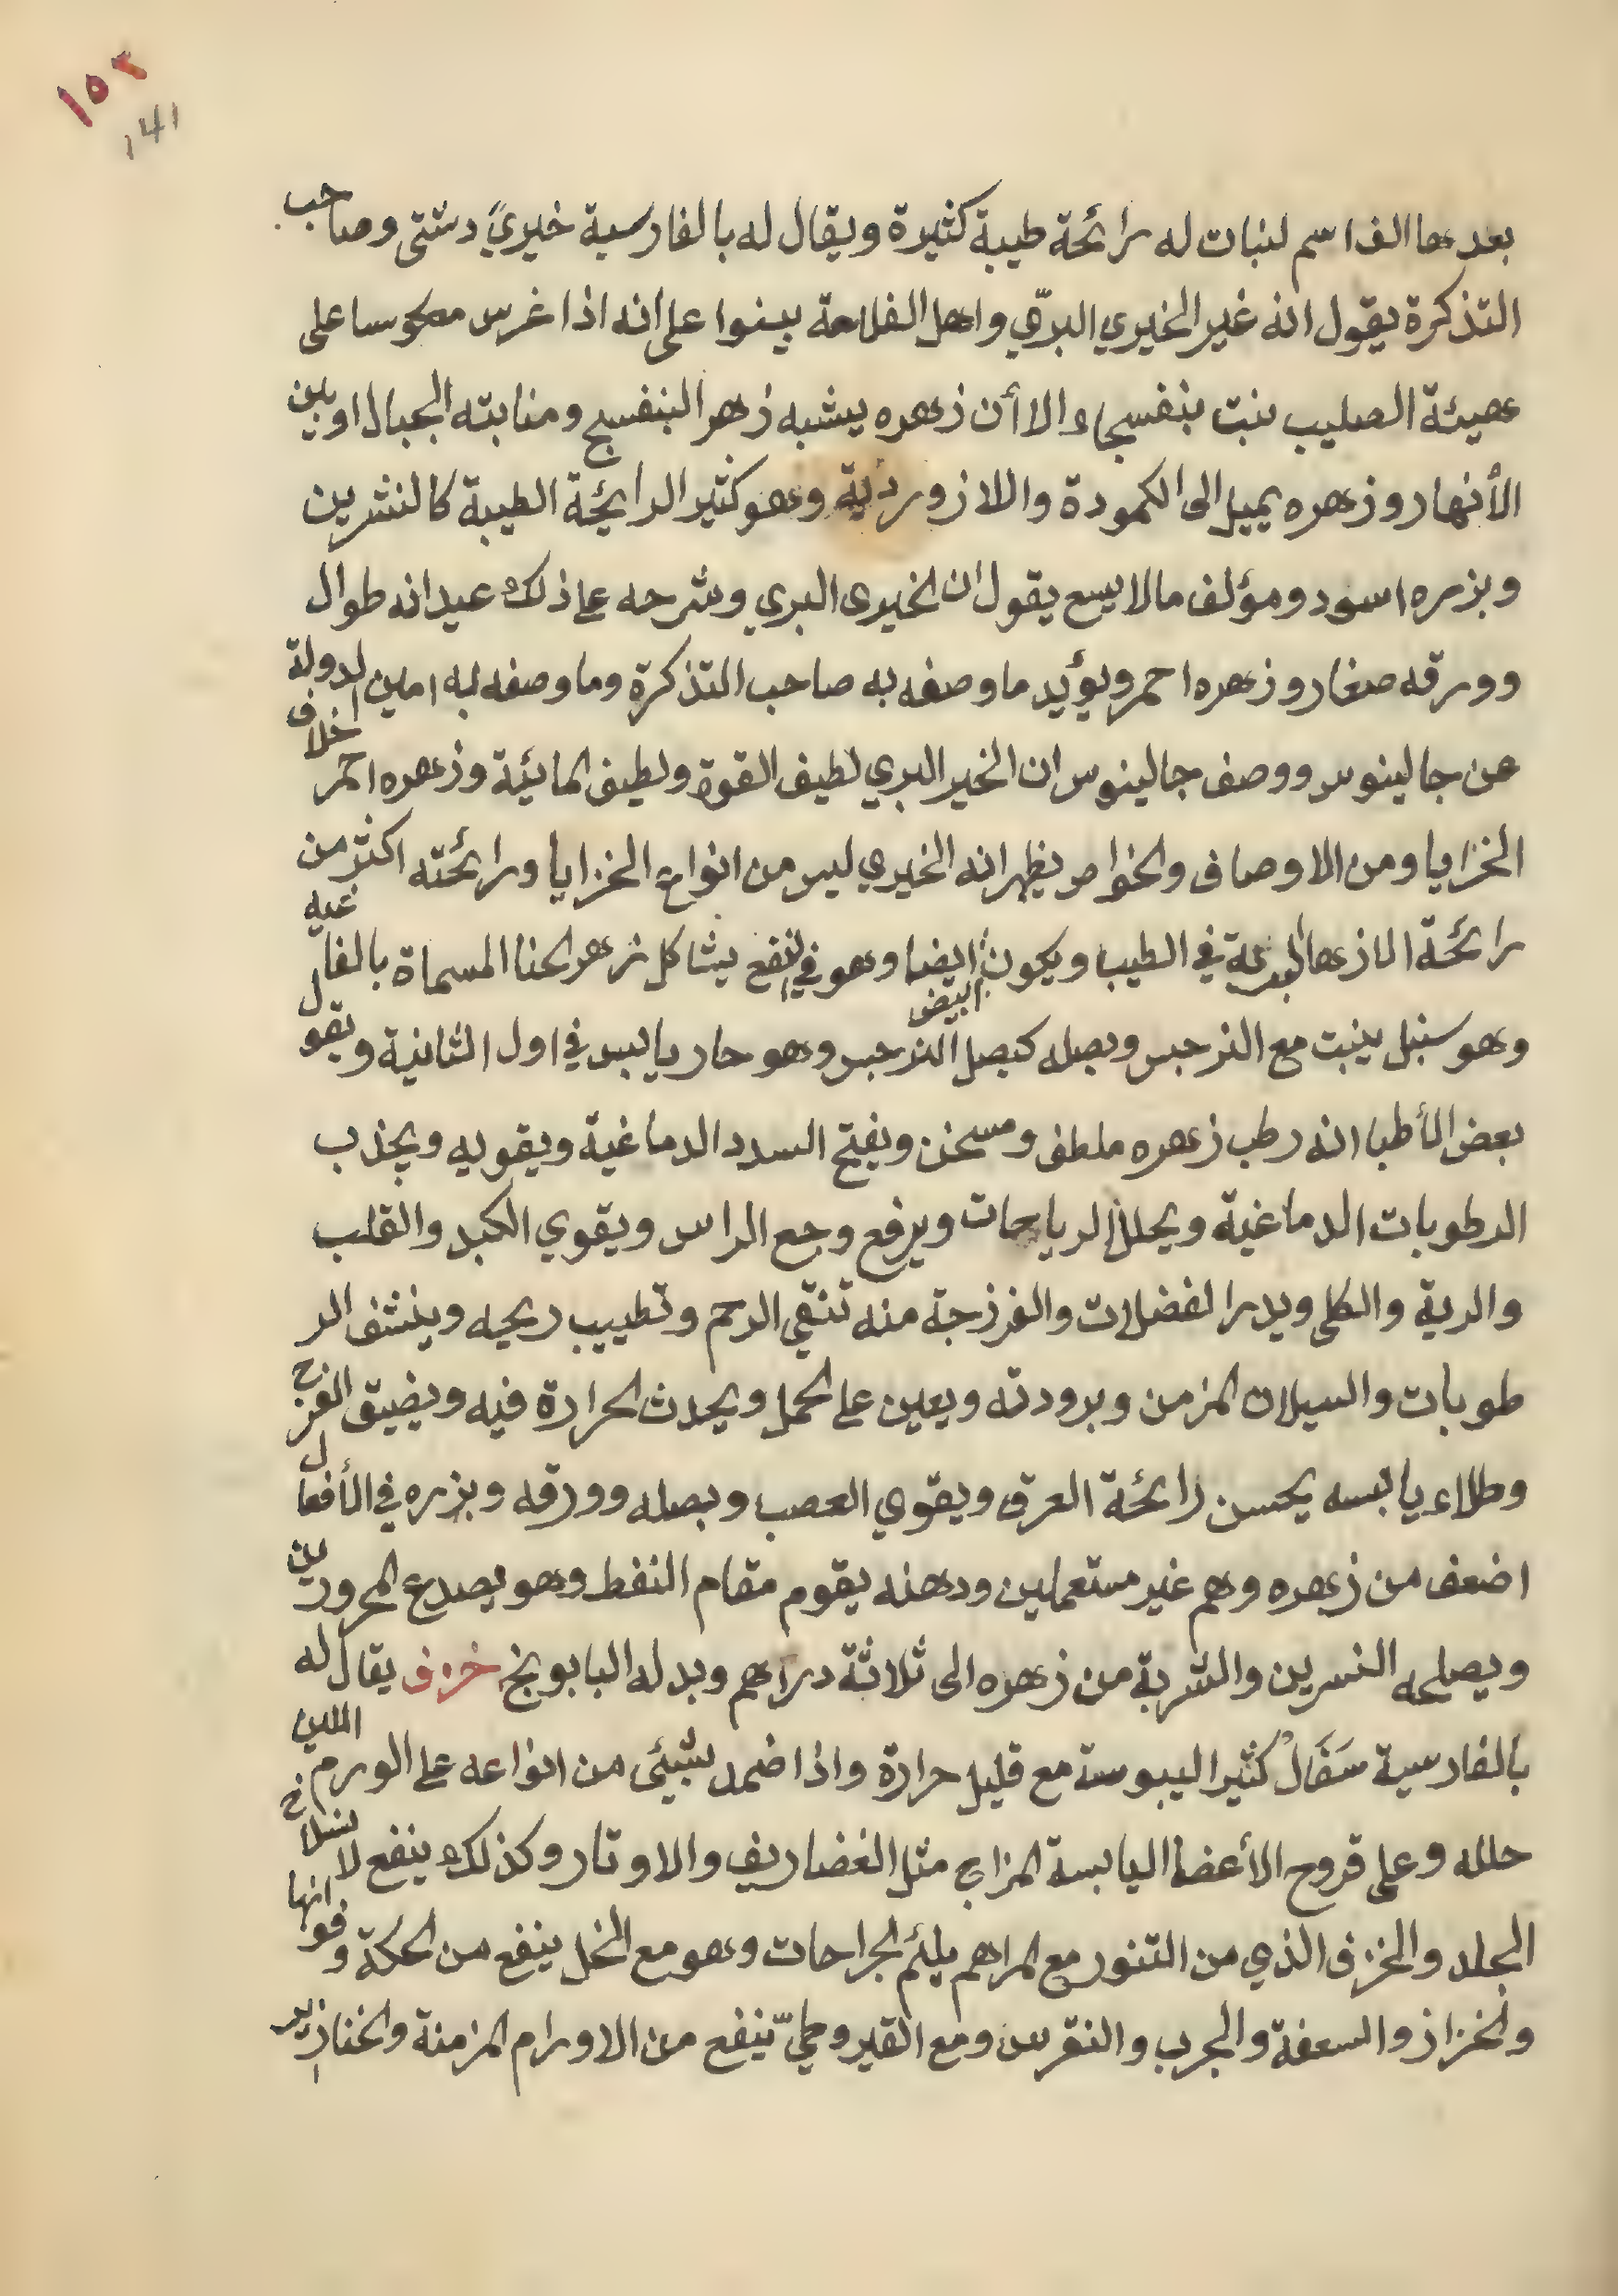 ١٥٢
١٤١
بعدها الف اسم لنبات له رائحة طيبة كثيرة ويقال له بالفارسية خيري دشتى وصاحب
التذكرة يقول انه غير الخيري البرّي واهل الفلاحة بينوا على انه اذا غرس معكوسا على
هيئة الصليب نبت بنفسجاء الا أن زهره يشبه زهر البنفسج ومنابته الجبال او بين
الأنهار وزهره يميل الى الكمودة واللازوردية وهو كثير الرائحة الطيبة كالنشرين
وبزره اسود ومؤلف مالا يسع يقول ان الخيرى البري وشرحه على ذلك عيدانه طوال
وورقه صغار وزهره احمر ويؤيد ما وصفه به صاحب التذكرة وما وصفه به امين الدولة
عن جالينوس ووصف جالينوس ان الخير البري لطيف القوة ولطيف المائية وزهره احمر خلاف
الخزايا ومن الاوصاف والخواص يظهر انه الخيري ليس من انواع الخزايا ورائحته اكثر من
رائحة الازهار البرية في الطيب ويكون ابيض ايضا وهو في النفع يشاكل زهر الحنا المسماة بالفاغيه
وهو سنبل ينبت مع النرجس وبصله كبصل النرجس وهو حار يابس في اول الثانية ويقول
بعض الأطبا انه رطب زهره ملطف ومسخن ويفتح السدد الدماغية ويقويه ويجذب
الرطوبات الدماغية ويحلل الرياحات ويرفع وجع الراس ويقوي الكبد والقلب
والرية والكلى ويدر الفضلات والفرزجة منه تنقي الرحم وتطييب ريحه وينشف الر
طوبات والسيلان المزمن وبرودته ويعين على الحمل ويحدث الحرارة فيه ويضيق الفرج
وطلاء يابسه يحسن رائحة العرق ويقوي العصب وبصله وورقه وبزره في الأفعال
اضعف من زهره وهم غير مستعملين ودهنه يقوم مقام النفط وهو يصدع المحرورين
ويصلحه النسرين والشربة من زهره الى ثلاثة دراهم وبدله البابونج خزف يقال له
بالفارسية سَفَالْ كثير اليبوسة مع قليل حرارة واذا ضمد بشيئ من انواعه على الورم اللين
حلله وعلى قروح الأعضا اليابسة المزاج مثل الغضاريف والاوتار وكذلك ينفع لانسلاخ
الجلد والخزف الذي من التنور مع المراهم يلئم الجراحات وهو مع الخل ينفع من الحكة وفوانها
والخزاز والسعفة والجرب والنقرس ومع القيروطيّ ينفع من الاورام المزمنة والخنازير